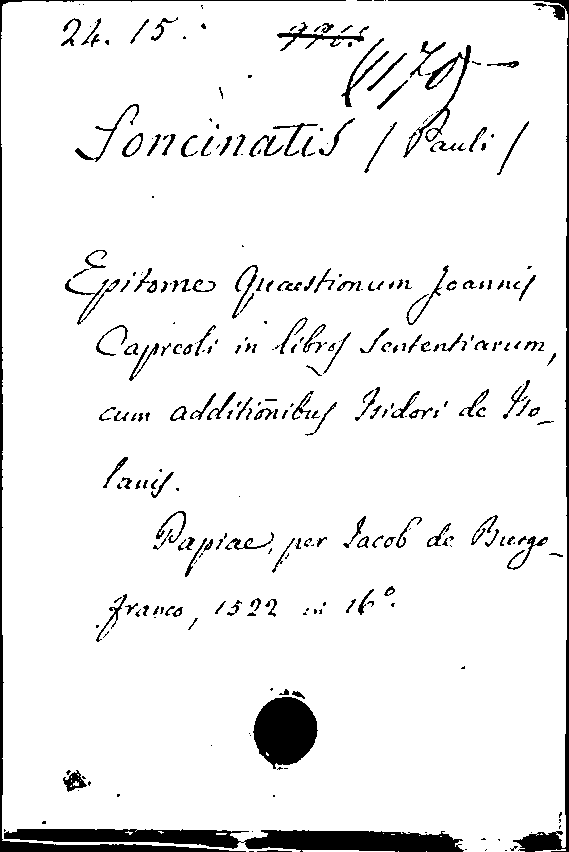 24. 15.
(1170)
Soncinatis / Pauli /
Epitome Quaestionum Joannis
Capreoli in libros Sententiarum,
cum additiōnibus Isidori de Iso-
lanis.
Papiae, per Jacob de Burgo-
franco, 1522 in 16°.